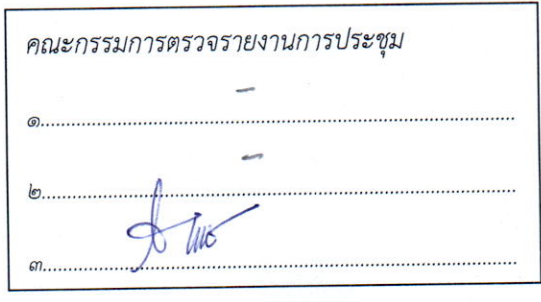 คณะกรรมการตรวจรายงานการประชุม
๑.......................... - ..........................
๒.......................... - ..........................
๓....................................................